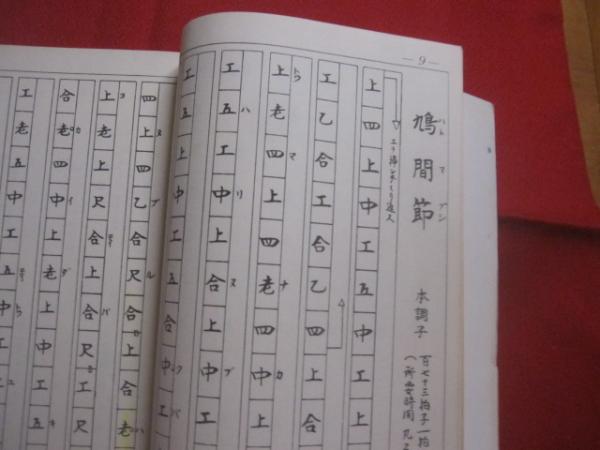 — 9 —
鳩間節
本調子
百七十三拍子一拍
(所要時間
上四上中工五中工上
工乙合工合乙四上合
上老四上四老四中上
マ ナ カ
工五工中上合上中工
ハ リ ヌ ブ
工五上中工五合中工
四上四乙合尺合上合老
ヌ ブ ル
上老上尺合上合尺工尺
合老四中上老上中工五
工老五中工五中工